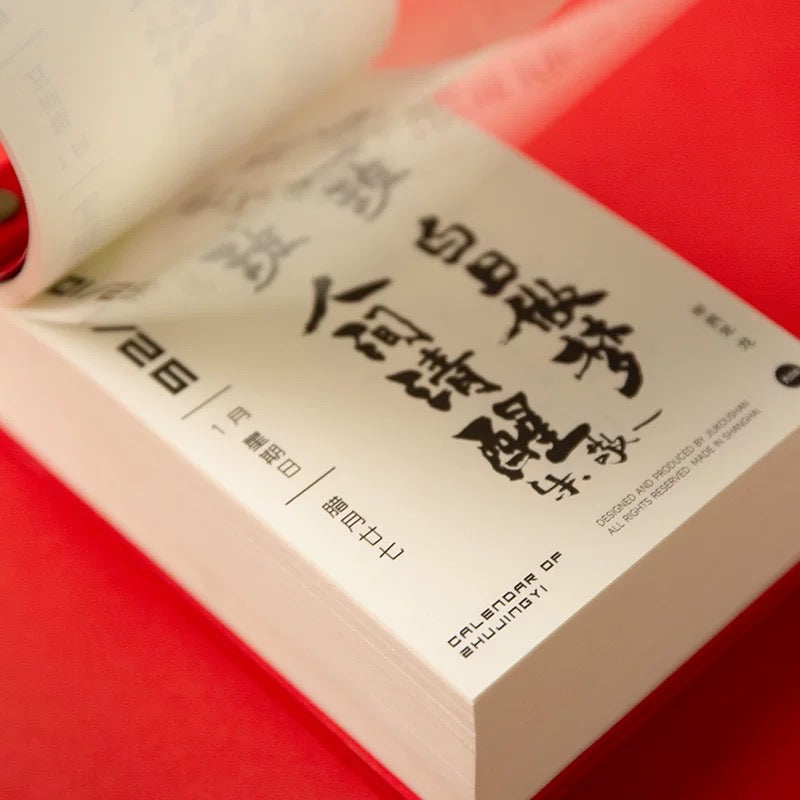 白日做梦
人间清醒
朱敬一
/26
1月 星期日
腊月廿七
DESIGNED AND PRODUCED BY JIUKOUSHAN
ALL RIGHTS RESERVED. MADE IN SHANGHAI
CALENDAR OF
ZHUJINGYI